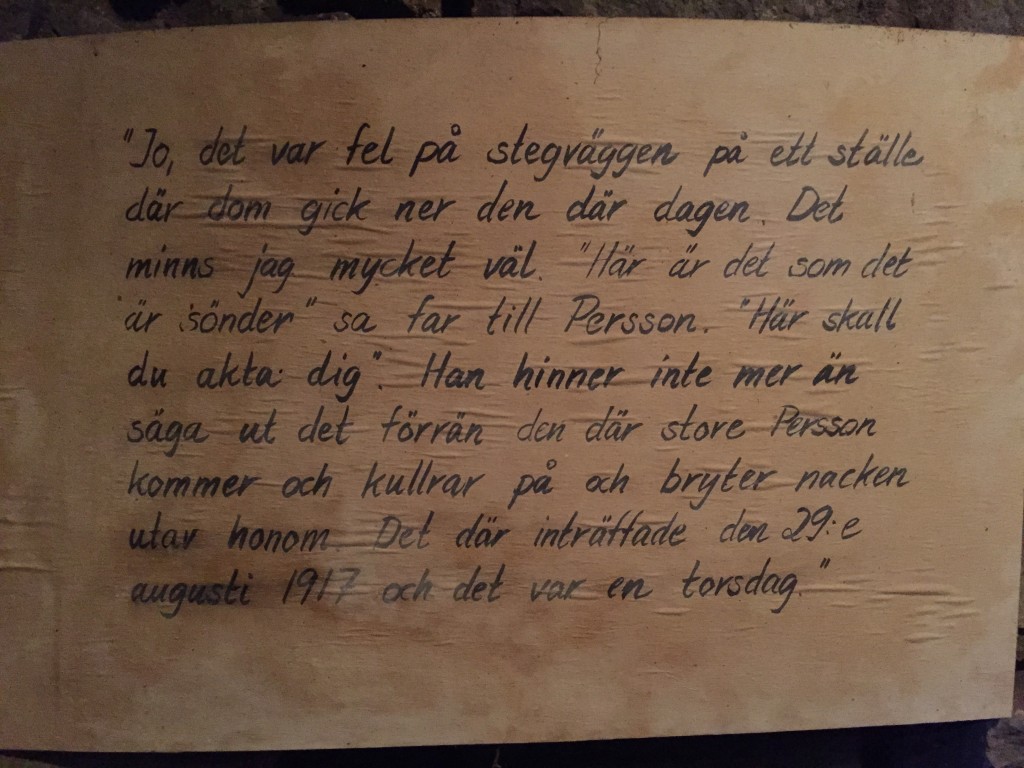 "Jo, det var fel på stegväggen på ett ställe
där dom gick ner den där dagen. Det
minns jag mycket väl. "Här är det som det
är sönder" sa far till Persson. "Här skall
du akta dig". Han hinner inte mer än
säga ut det förrän den där store Persson
kommer och kullrar på och bryter nacken
utav honom. Det där inträffade den 29:e
augusti 1917 och det var en torsdag."